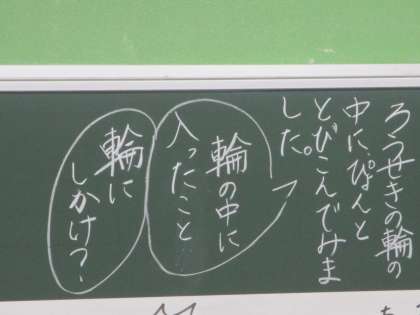 ろうせきの輪の
中に、ぴょんと
とびこんでみま
した。
輪の中に
入ったこと
輪に
しかけ？